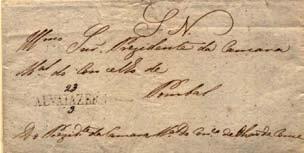 S. N.
Illmo Snr. Presidente da Camara
Mal do Concelho de
Pombal
23
ALVAIAZER
3
Do Presidte da Camara Mal do Conco de